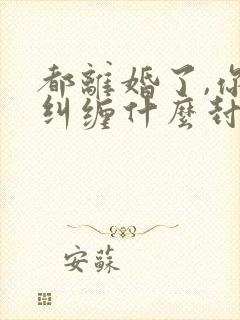 都離婚了,你
纠缠什麼封
安蘇